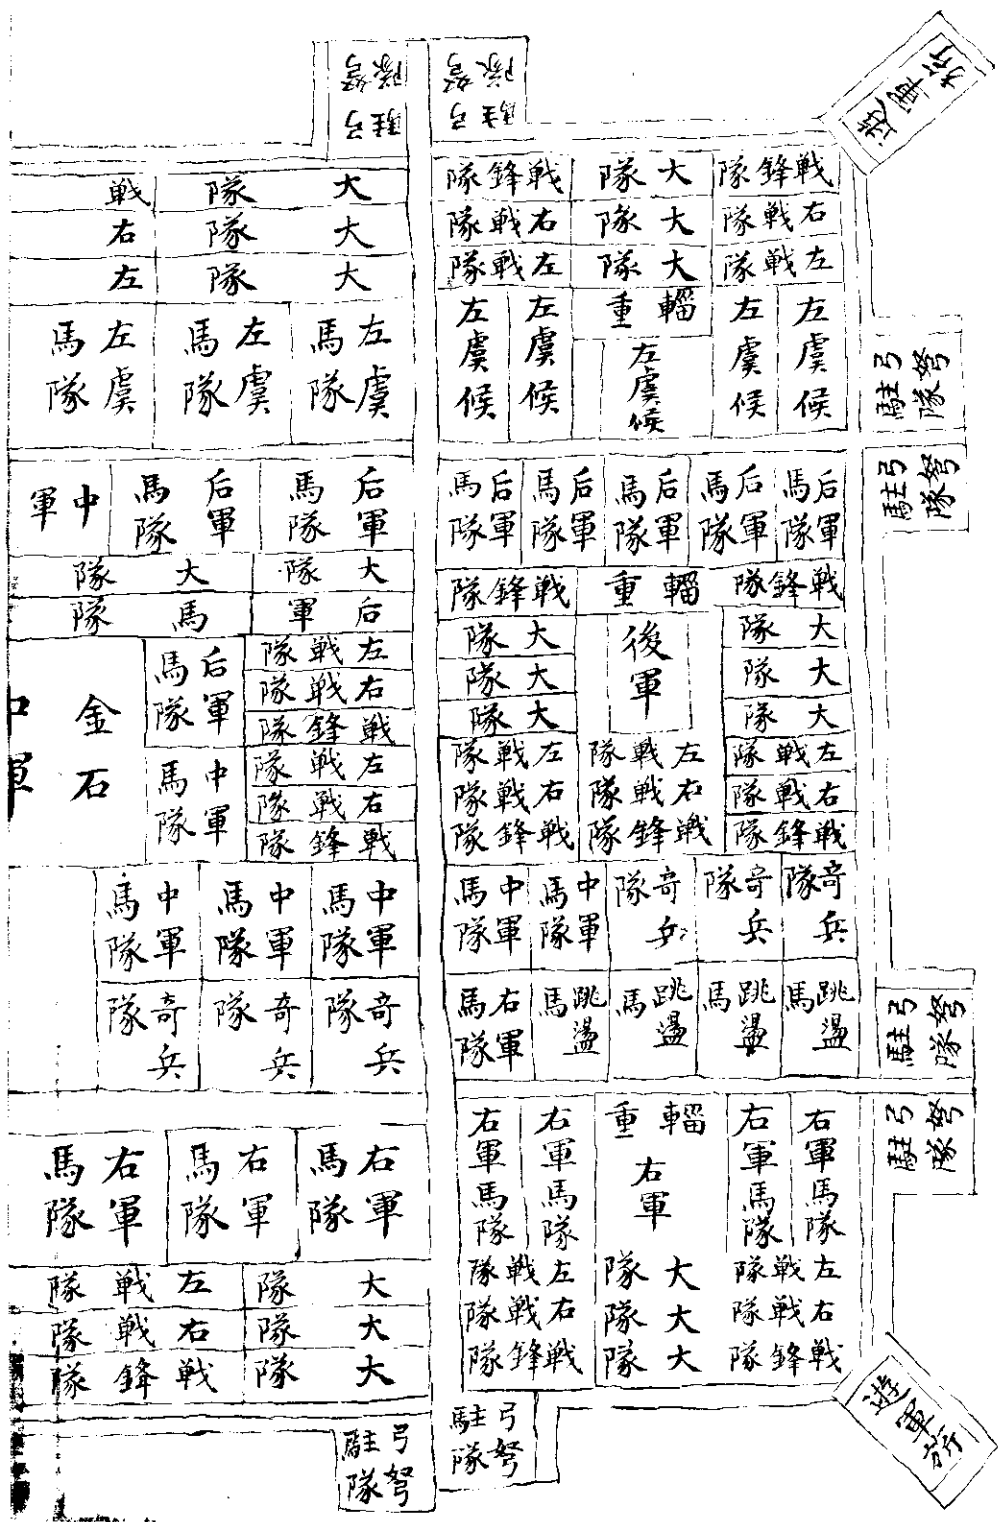 遊軍
弓弩駐隊
弓弩駐隊
戦鋒隊
大隊
戦鋒隊
右戦隊
大隊
右戦隊
左戦隊
大隊
左戦隊
左虞候
左虞候
輜重
左虞候
左虞候
左虞候
弓弩駐隊
弓弩駐隊
后軍馬隊
后軍馬隊
后軍馬隊
后軍馬隊
后軍馬隊
戦鋒隊
輜重
戦鋒隊
大隊
後軍
大隊
大隊
大隊
大隊
大隊
左戦隊
左戦隊
左戦隊
右戦隊
右戦隊
右戦隊
戦鋒隊
戦鋒隊
戦鋒隊
奇兵隊
奇兵隊
奇兵隊
中軍馬隊
中軍馬隊
跳盪馬
跳盪馬
跳盪馬
跳盪馬
右軍馬隊
弓弩駐隊
弓弩駐隊
右軍馬隊
右軍馬隊
輜重
右軍
右軍馬隊
右軍馬隊
左戦隊
大隊
左戦隊
右戦隊
大隊
右戦隊
戦鋒隊
大隊
戦鋒隊
遊軍
弓弩駐隊
大隊
戦
大隊
右
大隊
左
左虞馬隊
左虞馬隊
左虞馬隊
后軍馬隊
后軍馬隊
中軍
大隊
大隊
后軍
馬隊
左戦隊
右戦隊
戦鋒隊
左戦隊
右戦隊
戦鋒隊
后軍馬隊
中軍馬隊
金石
中軍
中軍馬隊
中軍馬隊
中軍馬隊
奇兵隊
奇兵隊
奇兵隊
右軍馬隊
右軍馬隊
右軍馬隊
大隊
左戦隊
大隊
右戦隊
大隊
戦鋒隊
弓弩駐隊